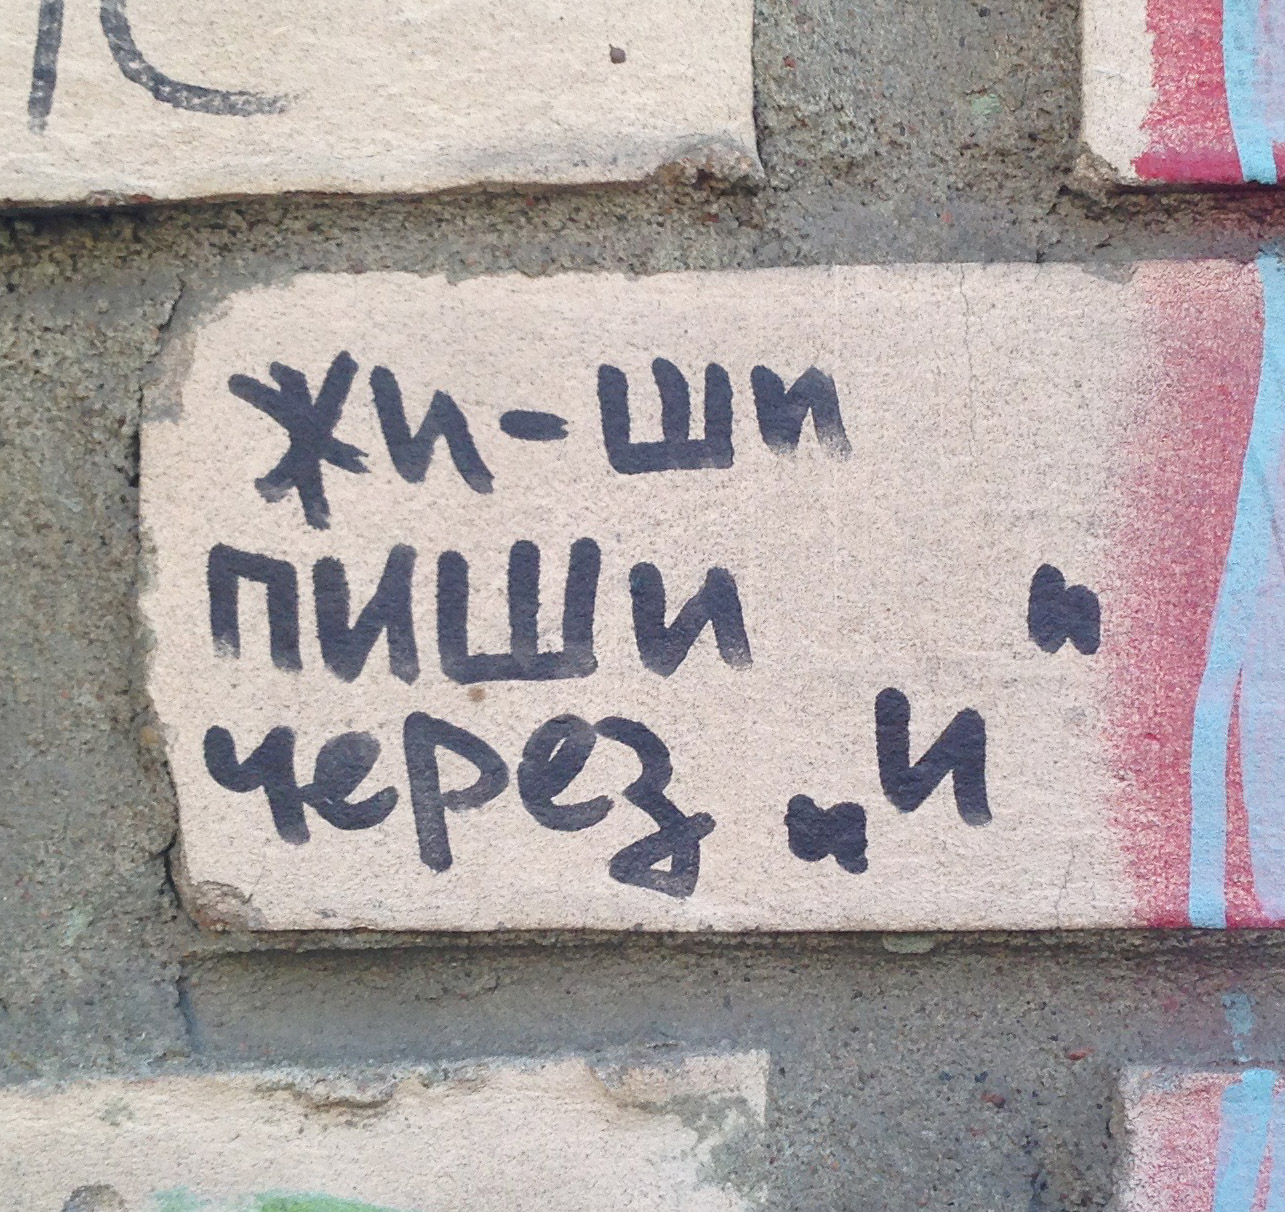 жи-ши
пиши
через „и“